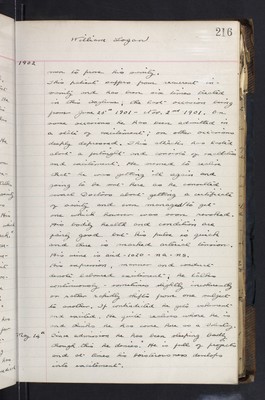 216
William Logan
1902
now to prove his sanity.
This patient suffers from recurrent in-
sanity and has been six times treated
in this Asylum; the last occasion being
from June 25th 1901 - Nov. 2nd 1901. On
some occasions he has been admitted in
a state of excitement; on other occasions
deeply depressed. This attack has lasted
about a fortnight and consists of
and excitement. He seemed to realise
that he was getting ill again and
going to be sent here as he consulted
several Doctors about getting a certificate
of sanity and even managed to get
one which however was soon revoked.
His bodily health and condition are
fairly good but his pulse is quick
and there is marked arterial tension.
His urine is acid - 1020 - na. - ns.
His expression, manner and conduct
denote elevated excitement; he talks
continuously - sometimes slightly incoherently
or rather abruptly shifts from one subject
to another. If contradicted he gets
and excited. He quite realises where he is
and thinks he has come here on a holiday.
May 14th Since admission he has been sleeping badly
though this he denies. He is full of projects
and at times his boisterousness
into excitement.